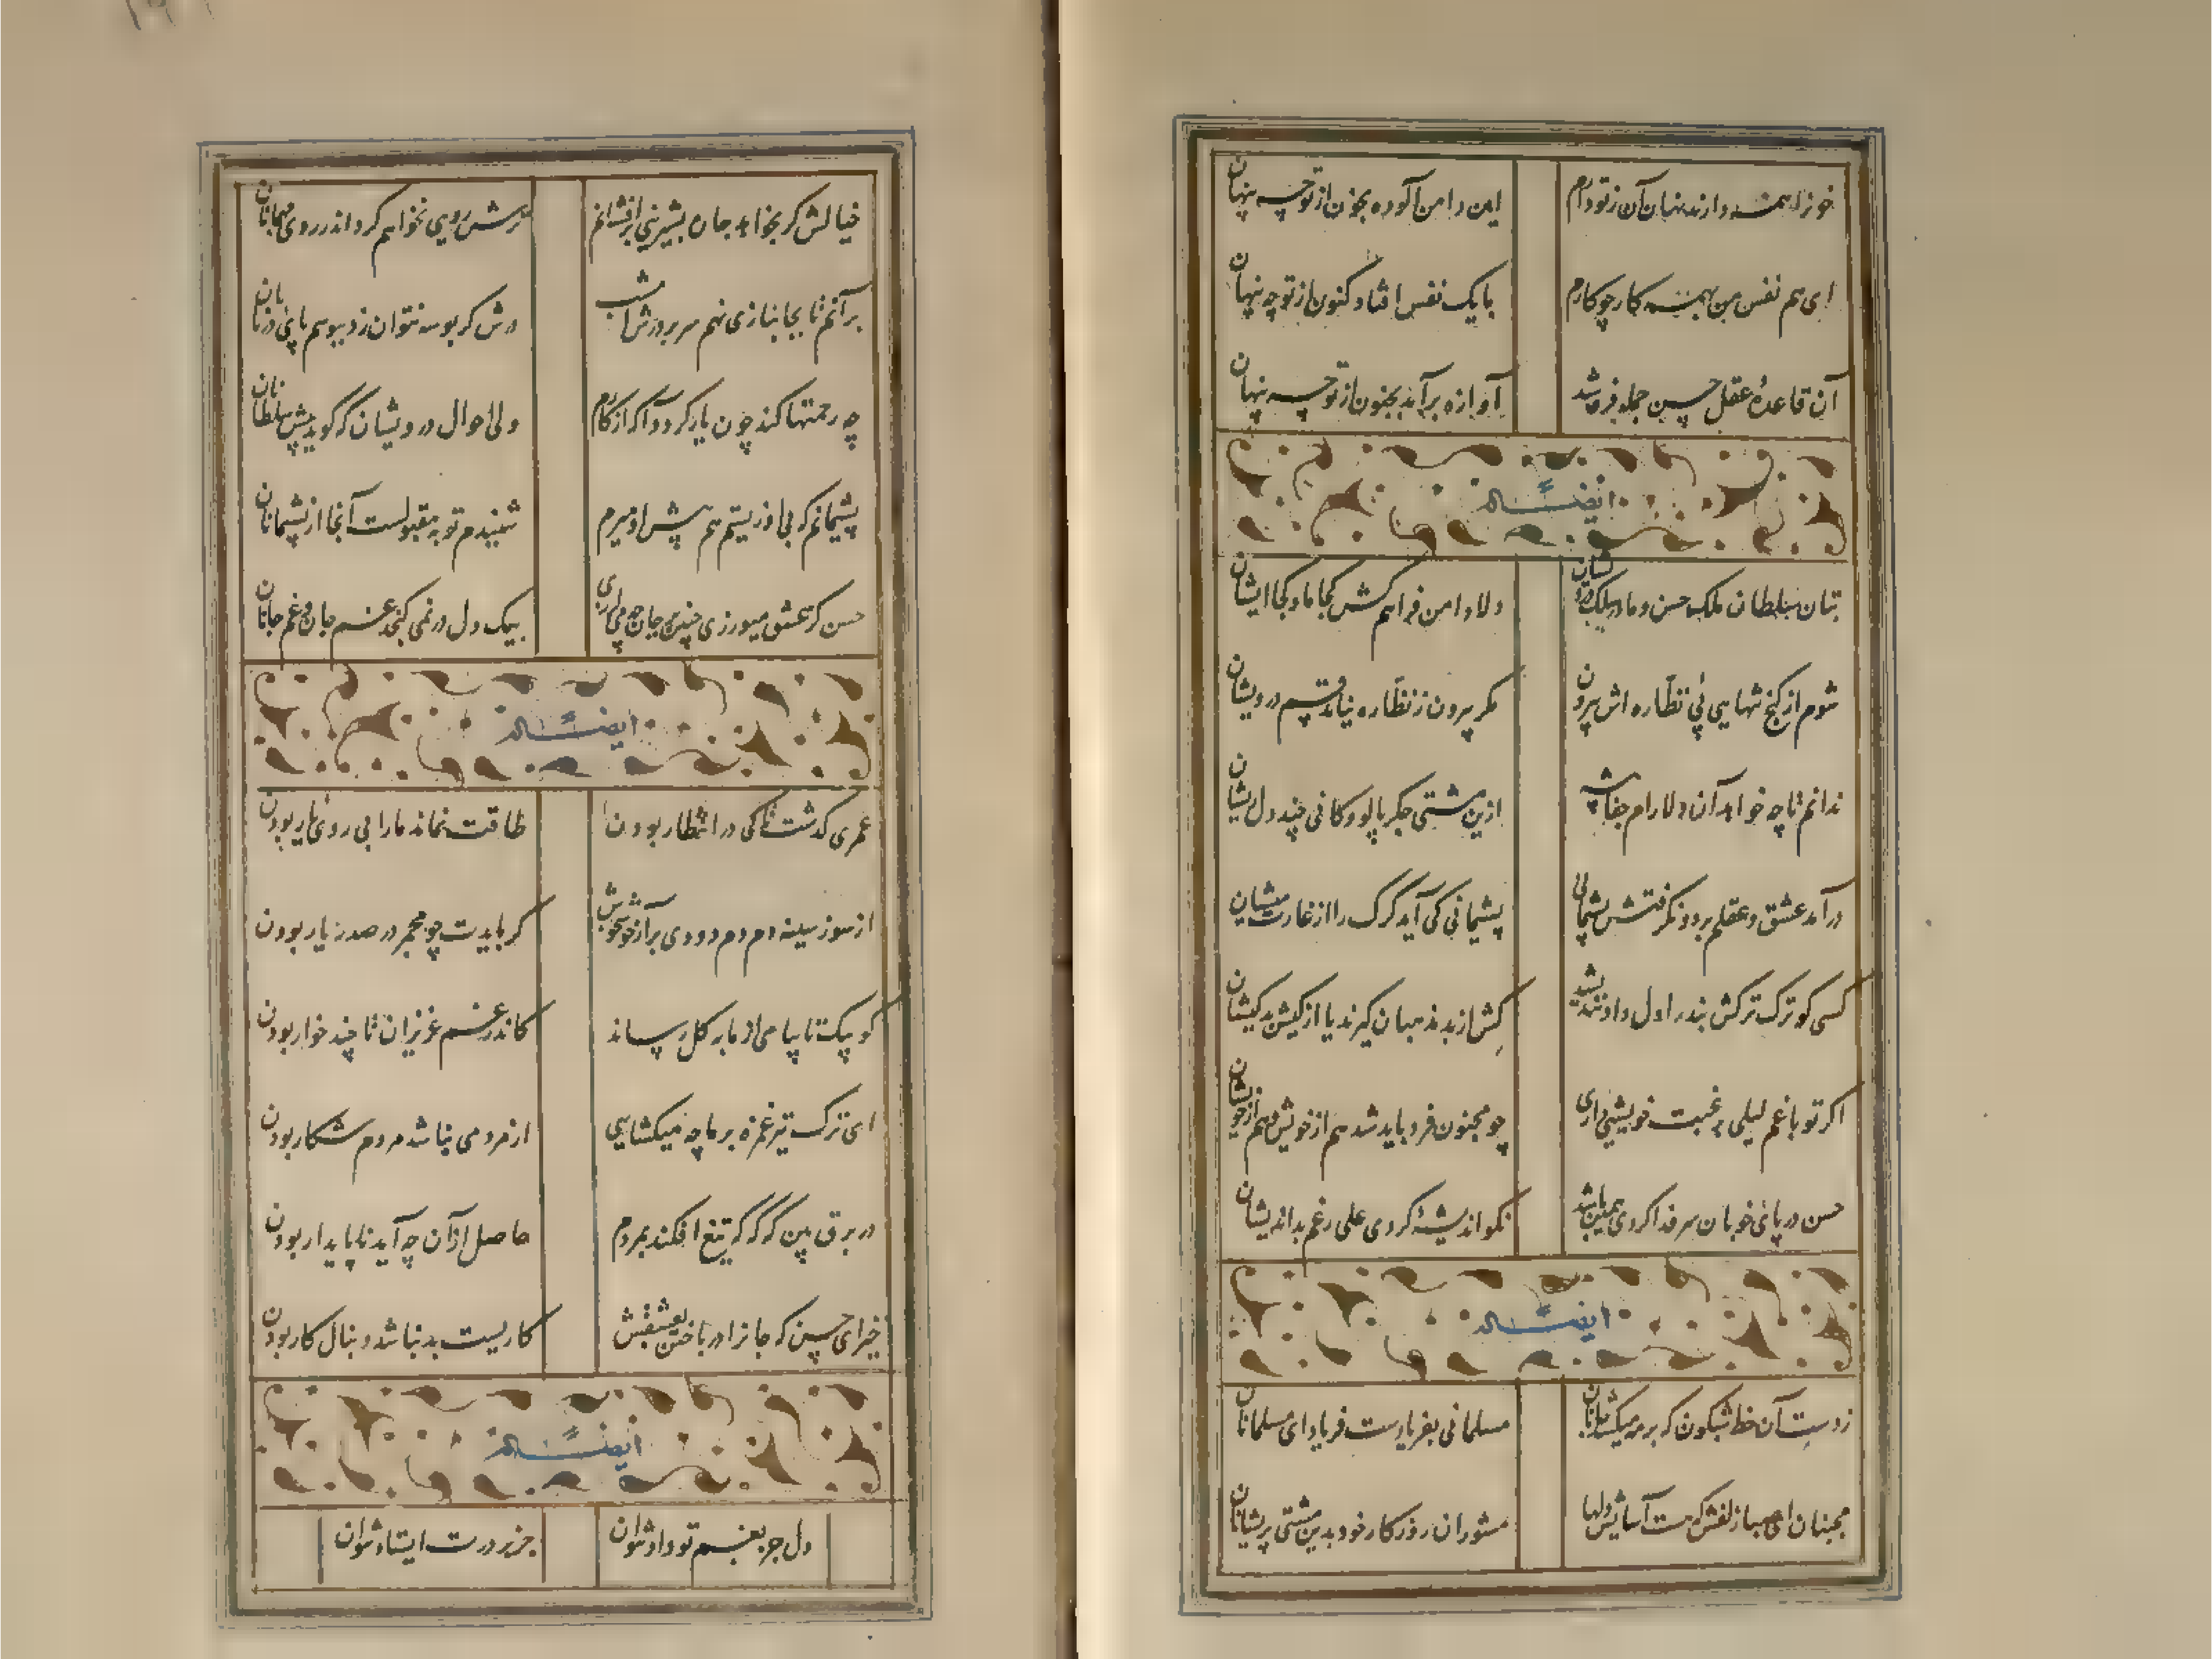 خون را همه دارند نهان آن ز تو دارم
این دامن آلوده بخون از تو چه پنهان
ای هم نفس من همه کار چو کارم
با یک نفس افتاد کنون از تو چه پنهان
آن قاعدهٔ عقل حسین جمله فرو شد
آوازه برآمد بجنون از تو چه پنهان
ایضاً له
بتان سلطان ملک حسن و ما در سلک درویشان
دلا دامن فراهم کش کجا ما و کجا ایشان
شوم از کنج تنهایی پی نظاره اش بیرون
مگر بیرون ز نظاره نیاید قسم درویشان
ندانم تا چه خواهد آن دلارام جفا پیشه
ازین مشتی جگر پالود و کانی چند دل ریشان
درآمد عشق و عقلم برد و نگرفتش پشیمانی
پشیمانی کی آید گرگ را از غارت میشان
کسی کو ترک ترکش بند را دل داد نندیشد
کش از بد مذهبان گیرند یا از کیش بد کیشان
اگر تو با غم لیلی بر غبت خویشیی داری
چو مجنون فرد باید شد هم از خویش و هم از خویشان
حسن در پای خوبان سر فدا کردی همین باشد
نکو اندیشهٔ کردی علی رغم بد اندیشان
ایضاً له
ز دست آن خط شبگون که بر مه میکشد جانان
مسلمانی بفریادست فریاد ای مسلمانان
مجنبان ای صبا زلفش که هست آسایش دلها
مشوران روزگار خود بدین مشتی پریشانان
خیالش گر بخواهد جان بشیرینی برافشانم
ترش رویی نخواهم کرد اندر روی مهمانان
برآنم تا بجانبازی نهم سر بر درش امشب
درش گر بوسه نتوان زد ببوسم پای دربانان
چه رحمتها کند چون یار گردد آگه از کارم
ولی احوال درویشان که گوید پیش سلطانان
پشیمانم که بی او زیستم هم پیش او میرم
شنیدم توبه مقبولست آنجا از پشیمانان
حسن گر عشق میورزی چنین جان چه می‌لرزی
بیک دل در نمی گنجد غم جان و غم جانان
ایضاً له
عمری گذشت تا کی در انتظار بودن
طاقت نماند ما را بی روی یار بودن
از سوز سینه دم دم دودی برآر خوش خوش
گر بایدت چو مجمر در صدر یار بودن
کو پیک تا پیامی از ما به گل رساند
کاندر غم عزیزان تا چند خوار بودن
ای ترک تیر غمزه بر ما چه میکشایی
از مردمی نباشد مردم شکار بودن
در برق بین که گه گه تیغ افکند بمردم
حاصل از آن چه آید ناپایدار بودن
خیز ای حسین که جانرا در باختن بعشقش
کاریست بد نباشد دنبال کار بودن
ایضاً له
دل جز بغم تو داد نتوان
جز بر درت ایستاد نتوان